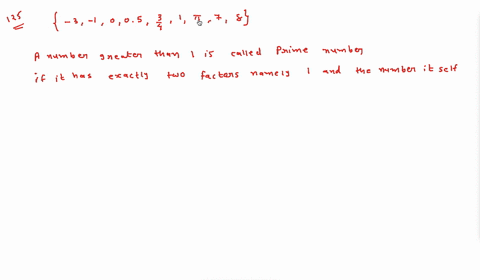 125 { -3, -1, 0, 0.5, 3/4, 1, π, 7, 8 }
A number greater than 1 is called Prime number
if it has exactly two factors namely 1 and the number it self